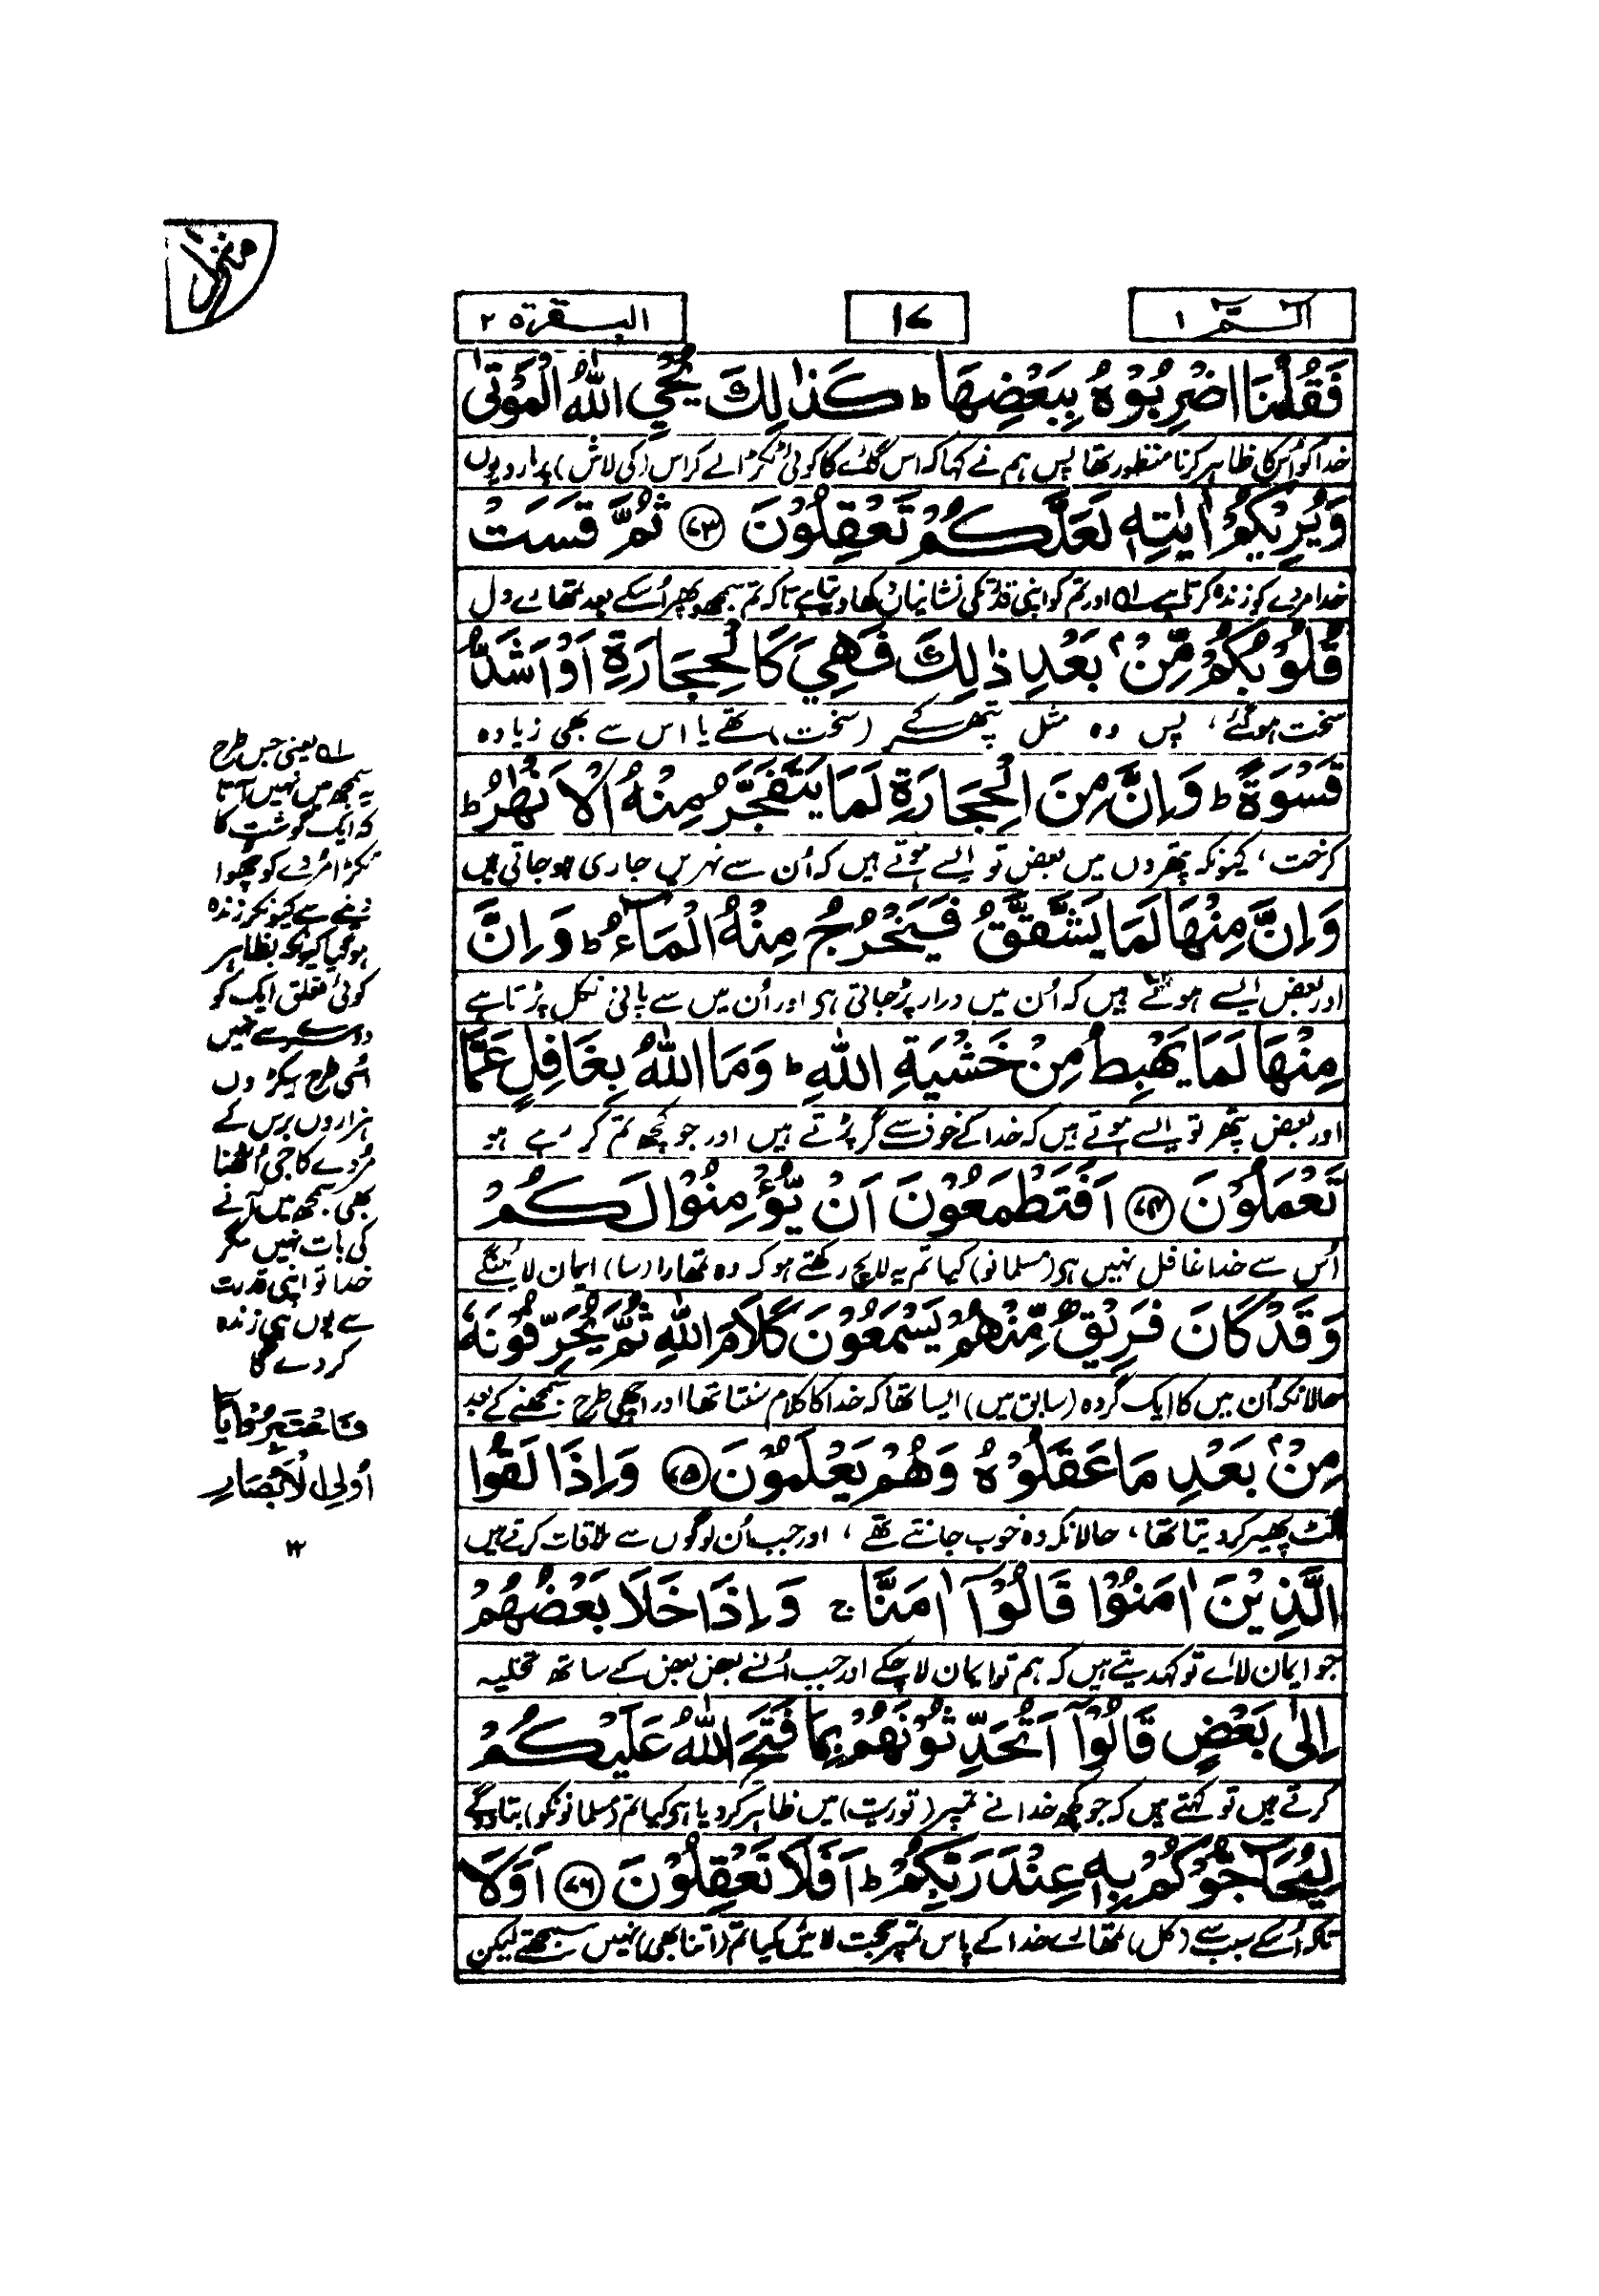 منزل ۱
الٓمّٓ ۱
۱۷
البقرۃ ۲
فَقُلْنَا اضْرِبُوْهُ بِبَعْضِهَا ؕ كَذٰلِكَ يُحْيِ اللّٰهُ الْمَوْتٰى
خدا کو اُس کا ظاہر کرنا منظور تھا پس ہم نے کہا کہ اس گائے کا کوئی ٹکڑا لے کر اس (کی لاش) پر مارو یوں
وَيُرِيْكُمْ اٰيٰتِهٖ لَعَلَّكُمْ تَعْقِلُوْنَ ﴿۷۳﴾ ثُمَّ قَسَتْ
خدا مردے کو زندہ کرتا ہے ؎۱ اور تم کو اپنی قدرت کی نشانیاں دکھا دیتا ہے تاکہ تم سمجھو پھر اُسکے بعد تمھارے دل
قُلُوْبُكُمْ مِّنْۢ بَعْدِ ذٰلِكَ فَهِيَ كَالْحِجَارَةِ اَوْ اَشَدُّ
سخت ہوگئے، پس وہ مثل پتھر کے (سخت) تھے یا اس سے بھی زیادہ
قَسْوَةً ؕ وَاِنَّ مِنَ الْحِجَارَةِ لَمَا يَتَفَجَّرُ مِنْهُ الْاَنْهٰرُ ؕ
کرخت، کیونکہ پتھروں میں بعض تو ایسے ہوتے ہیں کہ اُن سے نہریں جاری ہو جاتی ہیں
وَاِنَّ مِنْهَا لَمَا يَشَّقَّقُ فَيَخْرُجُ مِنْهُ الْمَآءُ ؕ وَاِنَّ
اور بعض ایسے ہوتے ہیں کہ اُن میں درار پڑ جاتی ہی اور اُن میں سے پانی نکل پڑتا ہے
مِنْهَا لَمَا يَهْبِطُ مِنْ خَشْيَةِ اللّٰهِ ؕ وَمَا اللّٰهُ بِغَافِلٍ عَمَّا
اور بعض پتھر تو ایسے ہوتے ہیں کہ خدا کے خوف سے گر پڑتے ہیں اور جو کچھ تم کر رہے ہو
تَعْمَلُوْنَ ﴿۷۴﴾ اَفَتَطْمَعُوْنَ اَنْ يُّؤْمِنُوْا لَكُمْ
اُس سے خدا غافل نہیں ہی (مسلمانو) کیا تم یہ لالچ رکھتے ہو کہ وہ تمھارا (سا) ایمان لائینگے
وَقَدْ كَانَ فَرِيْقٌ مِّنْهُمْ يَسْمَعُوْنَ كَلَامَ اللّٰهِ ثُمَّ يُحَرِّفُوْنَهٗ
حالانکہ اُن میں کا ایک گروہ (سابق میں) ایسا تھا کہ خدا کا کلام سنتا تھا اور اچھی طرح سمجھنے کے بعد
مِنْۢ بَعْدِ مَا عَقَلُوْهُ وَهُمْ يَعْلَمُوْنَ ﴿۷۵﴾ وَاِذَا لَقُوا
اُلٹ پھیر کر دیتا تھا، حالانکہ وہ خوب جانتے تھے، اور جب اُن لوگوں سے ملاقات کرتے ہیں
الَّذِيْنَ اٰمَنُوْا قَالُوْٓا اٰمَنَّا ۚ وَاِذَا خَلَا بَعْضُهُمْ
جو ایمان لائے تو کہدیتے ہیں کہ ہم تو ایمان لا چکے اور جب اُنسے بعض بعض کے ساتھ تخلیہ
اِلٰى بَعْضٍ قَالُوْٓا اَتُحَدِّثُوْنَهُمْ بِمَا فَتَحَ اللّٰهُ عَلَيْكُمْ
کرتے ہیں تو کہتے ہیں کہ جو کچھ خدا نے تمپر (توریت) میں ظاہر کر دیا ہی کیا تم (مسلمانونکو) بتا دوگے
لِيُحَآجُّوْكُمْ بِهٖ عِنْدَ رَبِّكُمْ ؕ اَفَلَا تَعْقِلُوْنَ ﴿۷۶﴾ اَوَلَا
تاکہ اُسکے سبب سے (کل) تمھارے خدا کے پاس تمپر حجت لائیں کیا تم (اتنا بھی) نہیں سمجھتے لیکن
؎۱ یعنی جس طرح
یہ سمجھ میں نہیں آتا
کہ ایک گوشت کا
ٹکڑا مُردے کو چھوا
دینے سے کیونکر زندہ
ہوگیا کیونکہ بظاہر
کوئی تعلق ایک کو
دوسرے سے نہیں
اُسی طرح سیکڑوں
ہزاروں برس کے
مُردے کا جی اُٹھنا
بھی سمجھ میں آنے
کی بات نہیں مگر
خدا تو اپنی قدرت
سے یوں ہی زندہ
کر دے گا
فَاعْتَبِرُوْا يَا
اُولِی الْاَبْصَارِ
۱۲